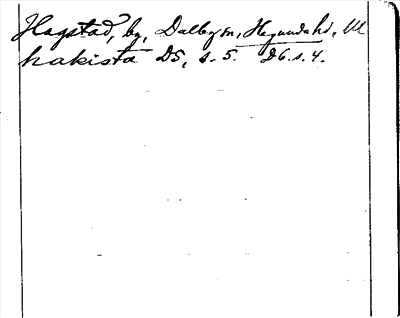 Hagstad, by, Dalby sn, Hagunda hd, Upl
hakista D5, s. 5. D6. s. 4.